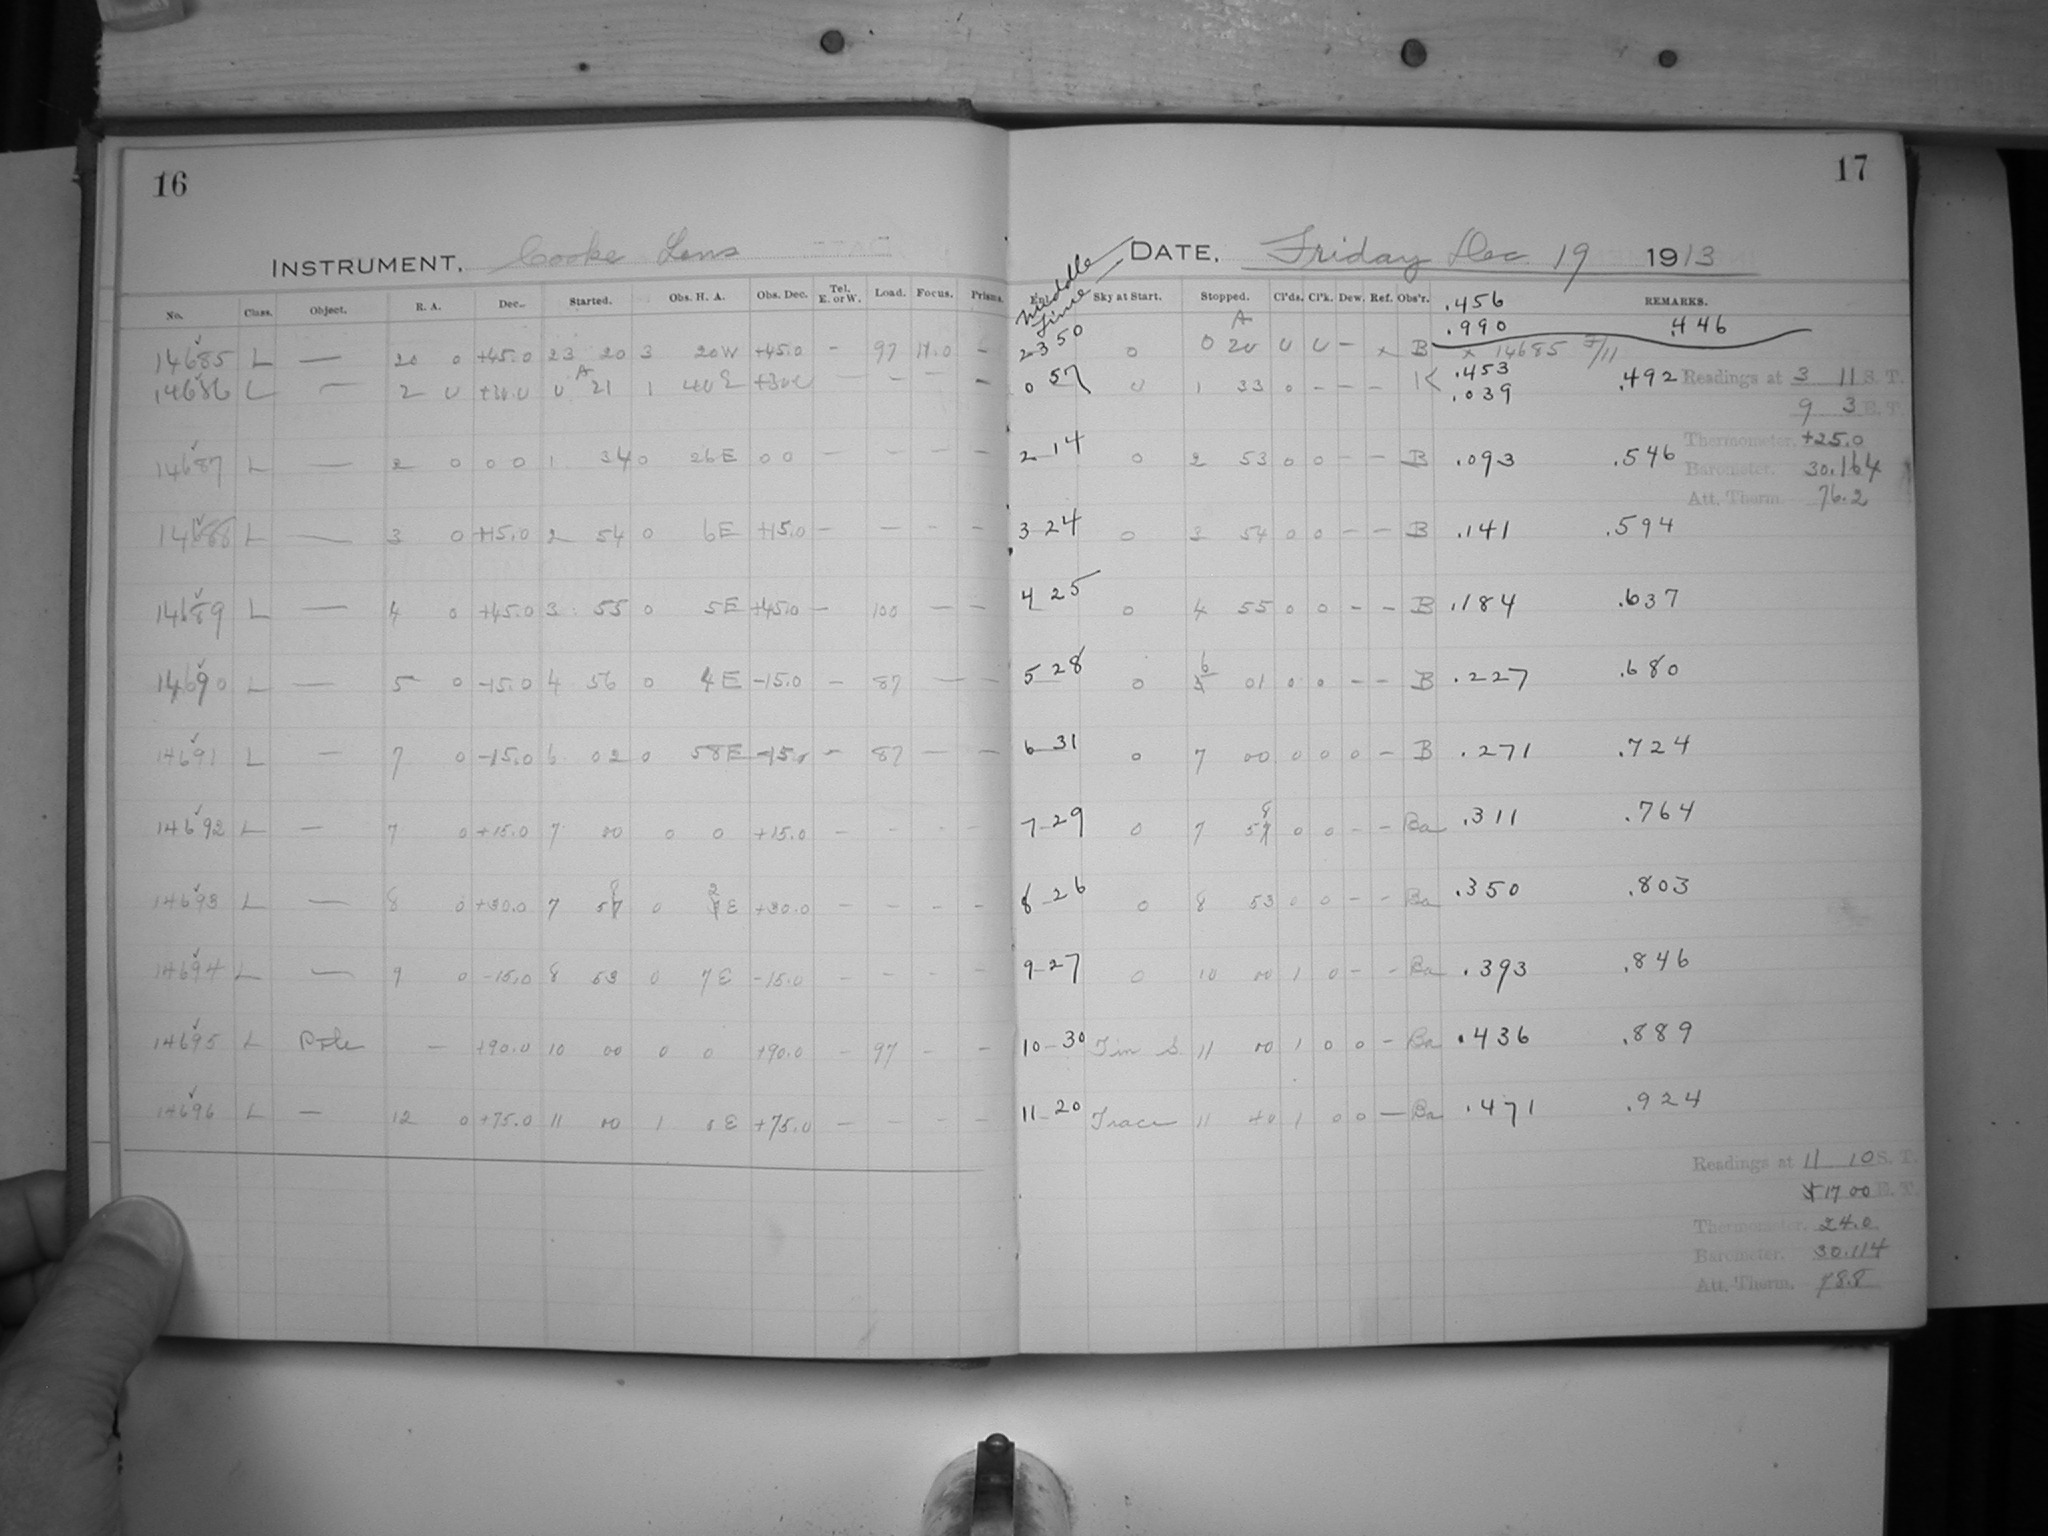 16
17
INSTRUMENT, Cooke Lens
DATE, Friday Dec 19 1913
No. Class. Object. R. A. Dec. Started. Obs. H. A. Obs. Dec. Tel. E. or W. Load. Focus. Prisms. Middle Time Sky at Start. Stopped. Cl'ds. Cl'k. Dew. Ref. Obs'r. .456 REMARKS.
.990 .446
14685 L — 20 0 +45.0 23 20 3 20W +45.0 - 97 11.0 - 23 50 0 0 20 0 0 - x B x 14685
14686 L — 2 0 +30.0 0 21 1 40E +30.0 — - - - 0 57 0 1 33 0 - - - K .453 .492 Readings at 3 11 S. T.
.039
9 3 E. T.
Thermometer. +25.0
14687 L — 2 0 0 0 1 34 0 26E 0 0 - - - - 2 14 0 2 53 0 0 - - B .093 .546 Barometer. 30.164
Att. Therm. 76.2
14688 L — 3 0 +15.0 2 54 0 6E +15.0 - - - - 3 24 0 3 54 0 0 - - B .141 .594
14689 L — 4 0 +45.0 3 55 0 5E +45.0 - 100 - - 4 25 0 4 55 0 0 - - B .184 .637
14690 L — 5 0 -15.0 4 56 0 4E -15.0 - 87 - - 5 28 0 6 01 0 0 - - B .227 .680
14691 L — 7 0 -15.0 6 02 0 58E -15.0 - 87 - - 6 31 0 7 00 0 0 0 - B .271 .724
14692 L — 7 0 +15.0 7 00 0 0 +15.0 - - - - 7 29 0 7 58 0 0 - - Ba .311 .764
14693 L — 8 0 +30.0 7 58 0 2E +30.0 - - - - 8 26 0 8 53 0 0 - - Ba .350 .803
14694 L — 9 0 -15.0 8 53 0 7E -15.0 - - - - 9 27 0 10 00 1 0 - - Ba .393 .846
14695 L Pole — +90.0 10 00 0 0 +90.0 - 97 - - 10 30 11 00 1 0 0 - Ba .436 .889
14696 L — 12 0 +75.0 11 00 1 0E +75.0 - - - - 11 20 Trace 11 40 1 0 0 — Ba .471 .924
Readings at 11 10 S. T.
17 00 E. T.
Thermometer. 24.0
Barometer. 30.114
Att. Therm. 78.8